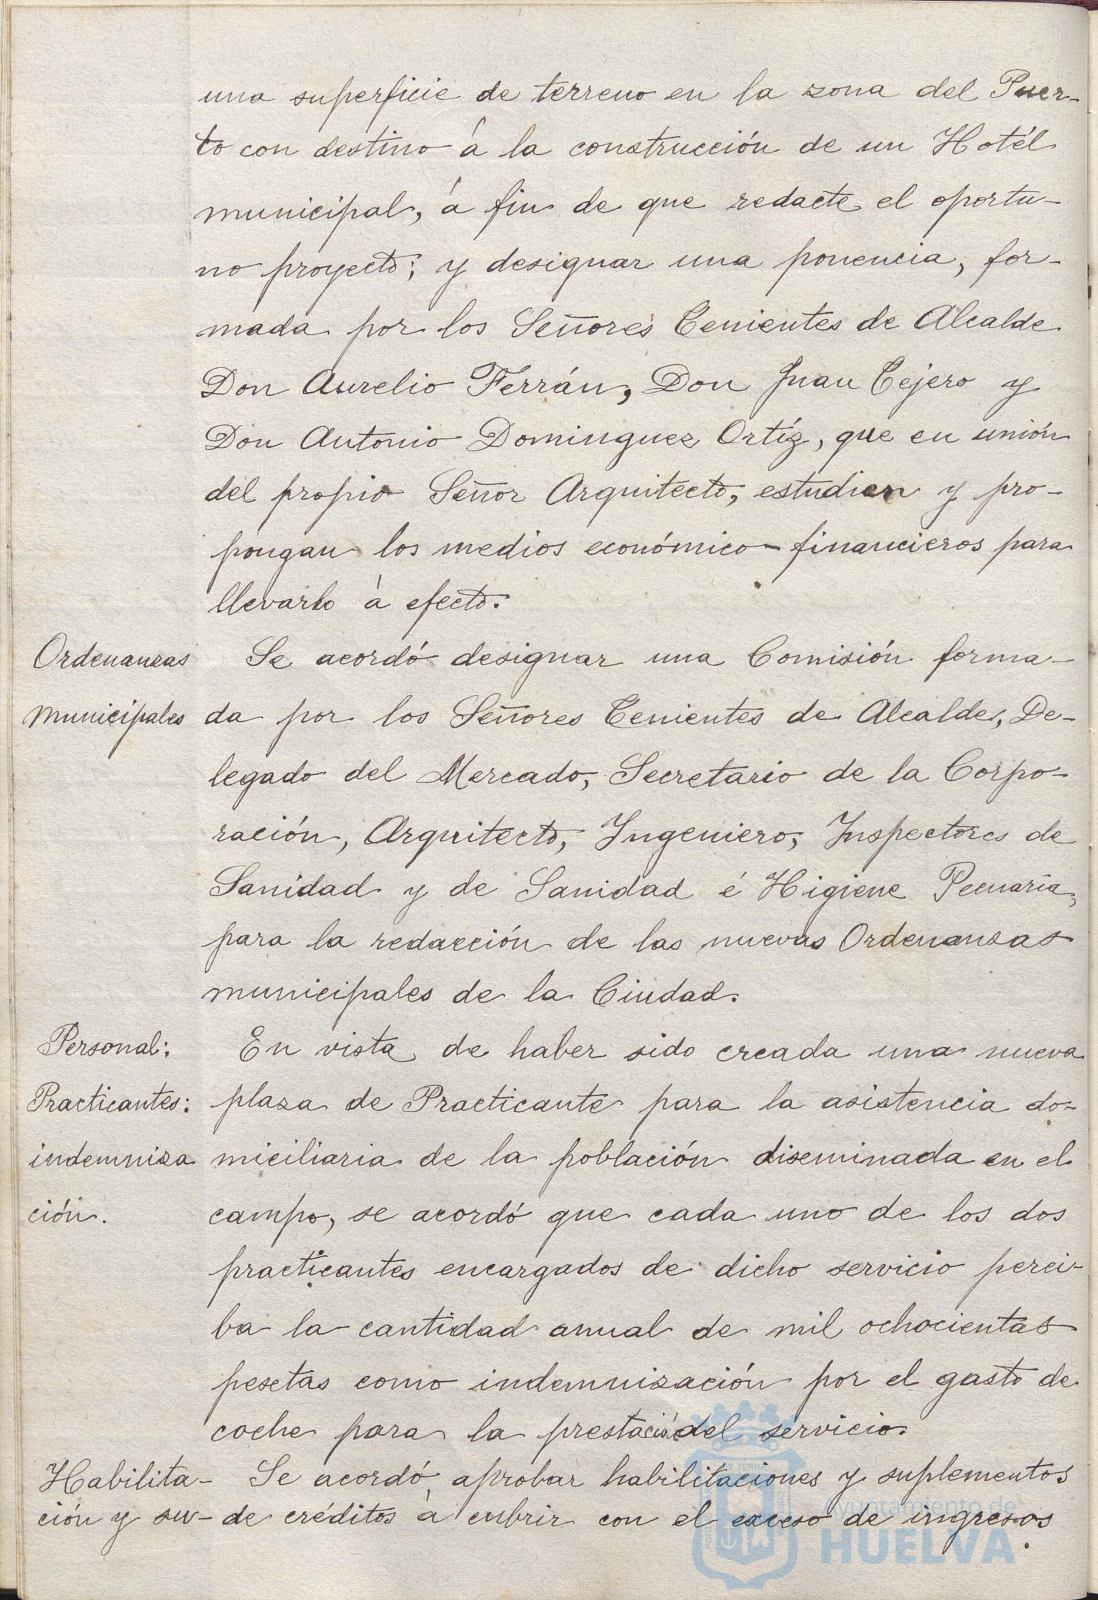 una superficie de terreno en la zona del Puer-
to con destino á la construcción de un Hotél
municipal, á fin de que redacte el oportu-
no proyecto; y designar una ponencia, for-
mada por los Señores Tenientes de Alcalde
Don Aurelio Ferrán, Don Juan Tejero y
Don Antonio Dominguez Ortíz, que en unión
del propio Señor Arquitecto, estudien y pro-
pongan los medios económico-financieros para
llevarlo á efecto.
Ordenanzas
municipales
Se acordó designar una Comisión forma-
da por los Señores Tenientes de Alcalde, De-
legado del Mercado, Secretario de la Corpo-
ración, Arquitecto, Ingeniero, Inspectores de
Sanidad y de Sanidad é Higiene Pecuaría,
para la redacción de las nuevas Ordenanzas
municipales de la Ciudad.
Personal:
Practicantes:
indemniza
ción.
En vista de haber sido creada una nueva
plaza de Practicante para la asistencia do-
miciliaria de la población diseminada en el
campo, se acordó que cada uno de los dos
practicantes encargados de dicho servicio perci-
ba la cantidad anual de mil ochocientas
pesetas como indemnización por el gasto de
coche para la prestació del servicio.
Habilita-
ción y su-
Se acordó, aprobar habilitaciones y suplementos
de créditos á cubrir con el exceso de ingresos
Ayuntamiento de
HUELVA